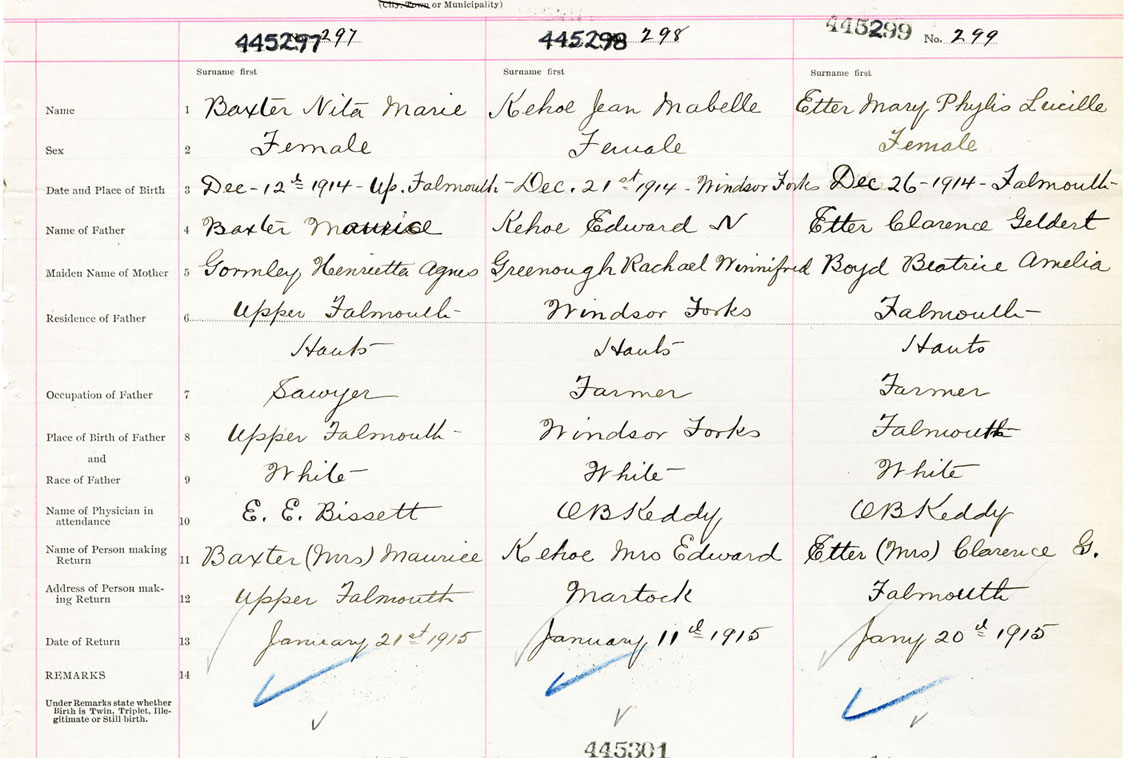 (City, Town or Municipality)
445297 297 445298 298 445299 No. 299
Surname first Surname first Surname first
Name 1 Baxter Nita Marie Kehoe Jean Mabelle Etter Mary Phylis Lucille
Sex 2 Female Female Female
Date and Place of Birth 3 Dec - 12th 1914 - Up. Falmouth - Dec. 21st 1914 - Windsor Forks Dec 26 - 1914 - Falmouth -
Name of Father 4 Baxter Maurice Kehoe Edward N Etter Clarence Geldert
Maiden Name of Mother 5 Gormley Henrietta Agnes Greenough Rachael Winnifred Boyd Beatrice Amelia
Residence of Father 6 Upper Falmouth - Windsor Forks Falmouth -
Hants Hants Hants
Occupation of Father 7 Sawyer Farmer Farmer
Place of Birth of Father 8 Upper Falmouth - Windsor Forks Falmouth
and
Race of Father 9 White White White
Name of Physician in
attendance 10 E. E. Bissett OB Keddy OB Keddy
Name of Person making
Return 11 Baxter (Mrs) Maurice Kehoe Mrs Edward Etter (Mrs) Clarence G.
Address of Person mak-
ing Return 12 Upper Falmouth Martock Falmouth
Date of Return 13 January 21st 1915 January 11th 1915 Jany 20th 1915
REMARKS 14
Under Remarks state whether
Birth is Twin, Triplet, Ille-
gitimate or Still birth.
445301